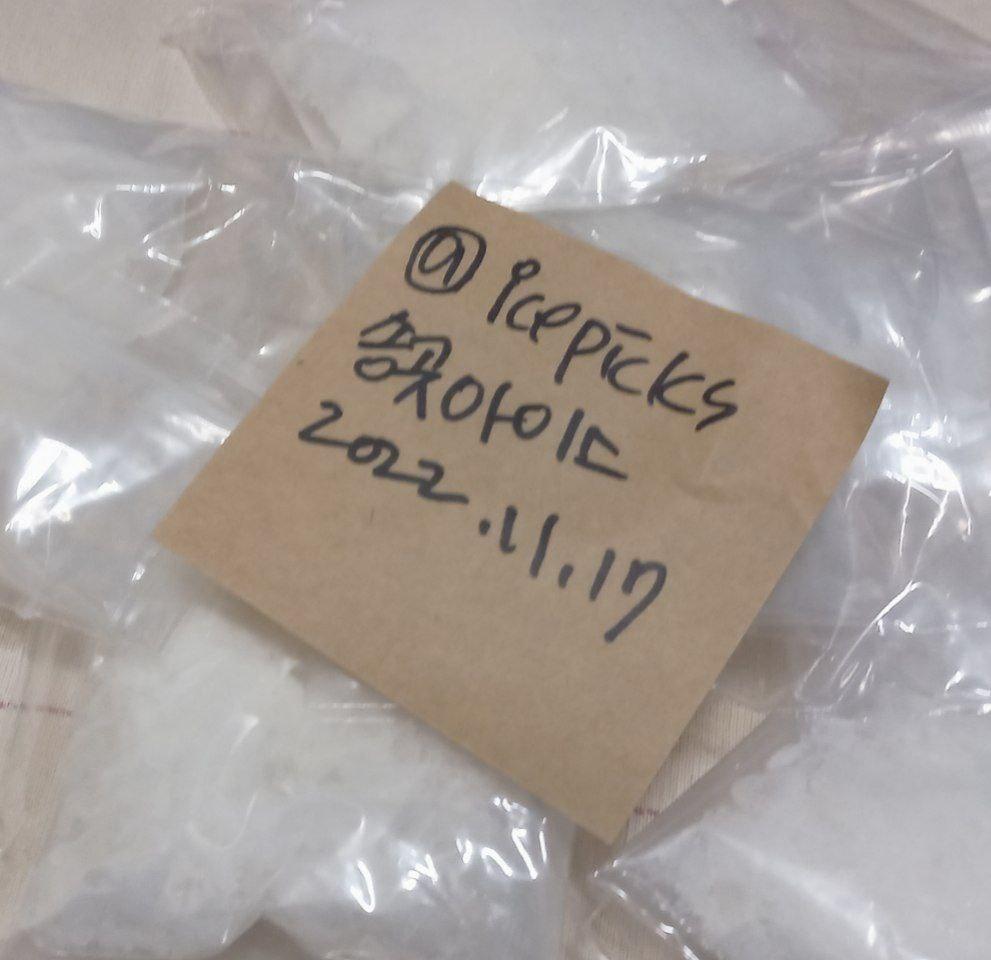 @icepicks
송곳아이드
2022.11.17